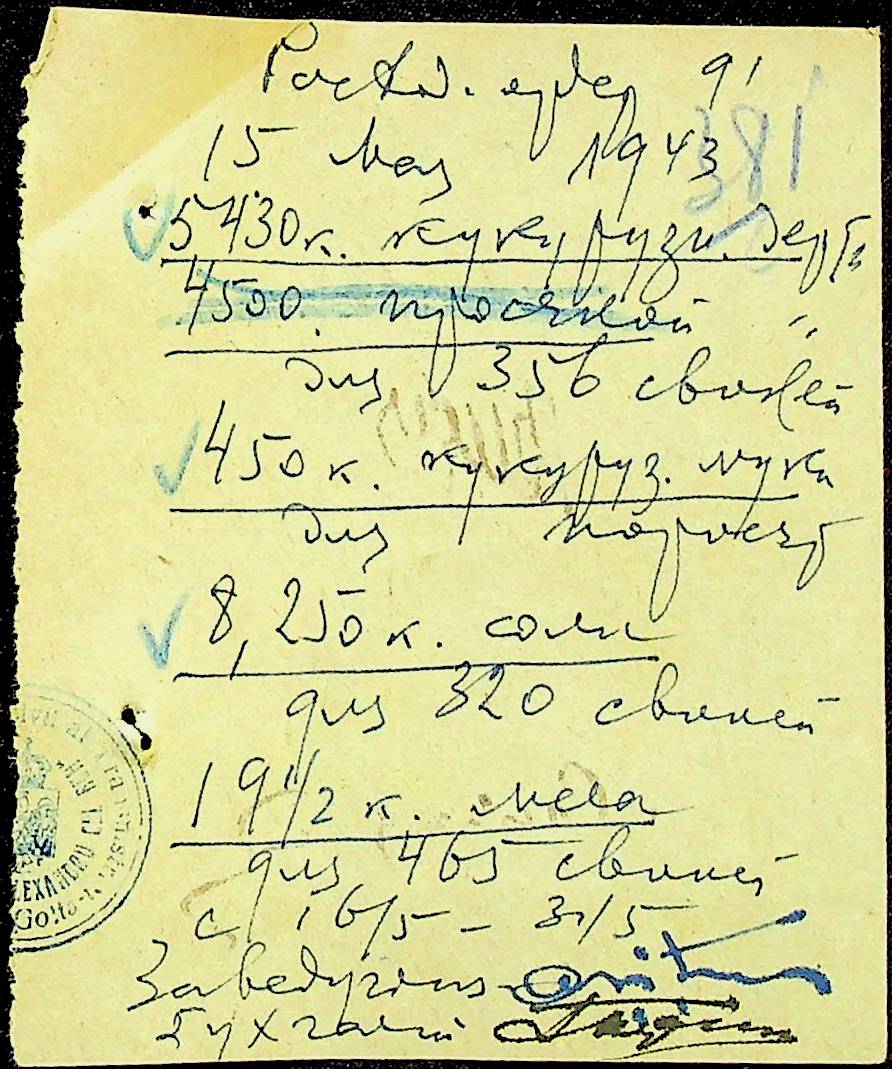 Расход. ордер 91
381
15 мая 1943
5430 к. кукурузн. дерть
4500. просяной "
для 356 свиней
450 к. кукуруз. мука
для поросят
8,250 к. соли
для 320 свиней
19 1/2 к. мела
для 465 свиней
с 16/5 - 31/5
Заведующий
Бухгалтер